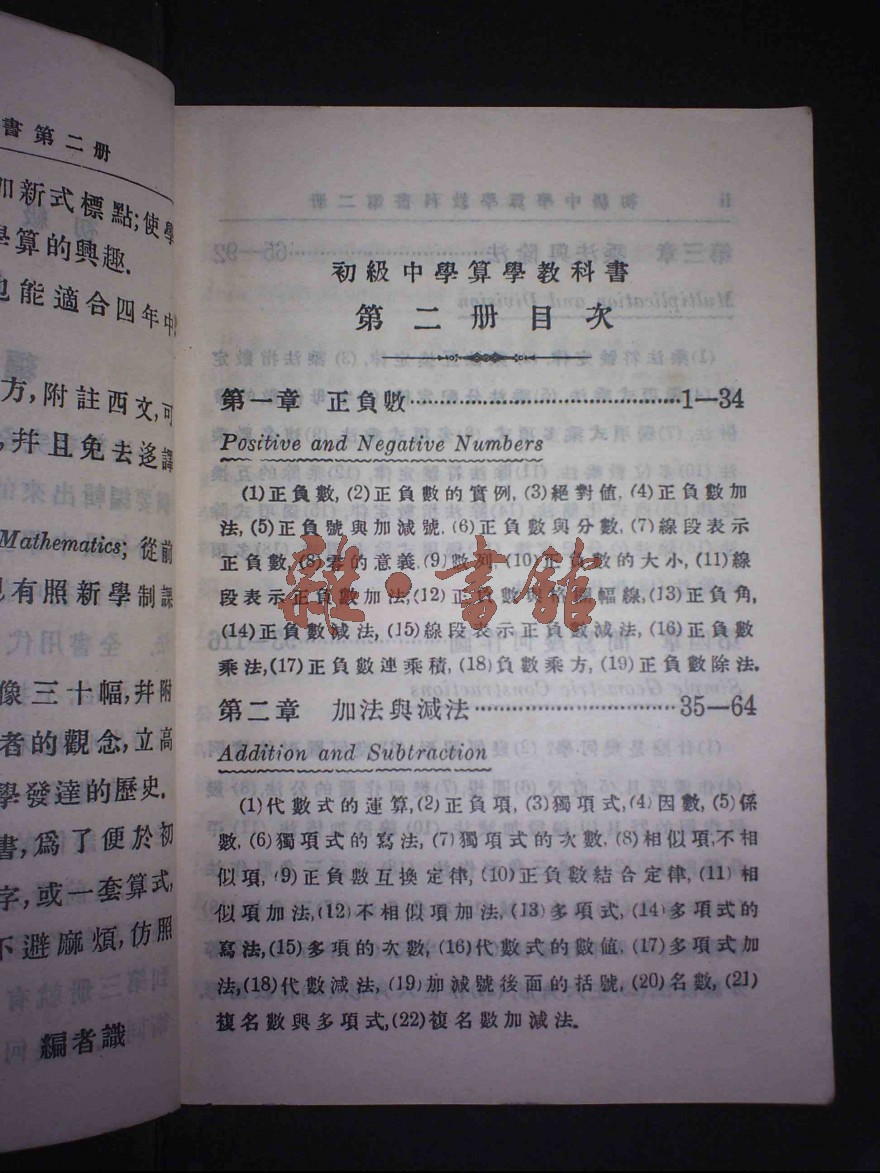 書第二册
加新式標點;使學
學算的興趣.
也能適合四年中
方,附註西文,可
,幷且免去迻譯
Mathematics; 從前
有照新學制課
像三十幅,幷附
者的觀念,立高
學發達的歷史.
書,爲了便於初
字,或一套算式,
不避麻煩,仿照
編者識
初級中學算學教科書
第二册目次
第一章 正負數……………………1—34
Positive and Negative Numbers
(1)正負數,(2)正負數的實例,(3)絕對值,(4)正負數加
法,(5)正負號與加減號,(6)正負數與分數,(7)線段表示
正負數,(8)零的意義,(9)數列,(10)正負數的大小,(11)線
段表示正負數加法,(12)正負數與格圖幅線,(13)正負角,
(14)正負數減法,(15)線段表示正負數減法,(16)正負數
乘法,(17)正負數連乘積,(18)負數乘方,(19)正負數除法.
第二章 加法與減法……………………35—64
Addition and Subtraction
(1)代數式的運算,(2)正負項,(3)獨項式,(4)因數,(5)係
數,(6)獨項式的寫法,(7)獨項式的次數,(8)相似項,不相
似項,(9)正負數互換定律,(10)正負數結合定律,(11)相
似項加法,(12)不相似項加法,(13)多項式,(14)多項式的
寫法,(15)多項的次數,(16)代數式的數値,(17)多項式加
法,(18)代數減法,(19)加減號後面的括號,(20)名數,(21)
複名數與多項式,(22)複名數加減法.
雜·書館